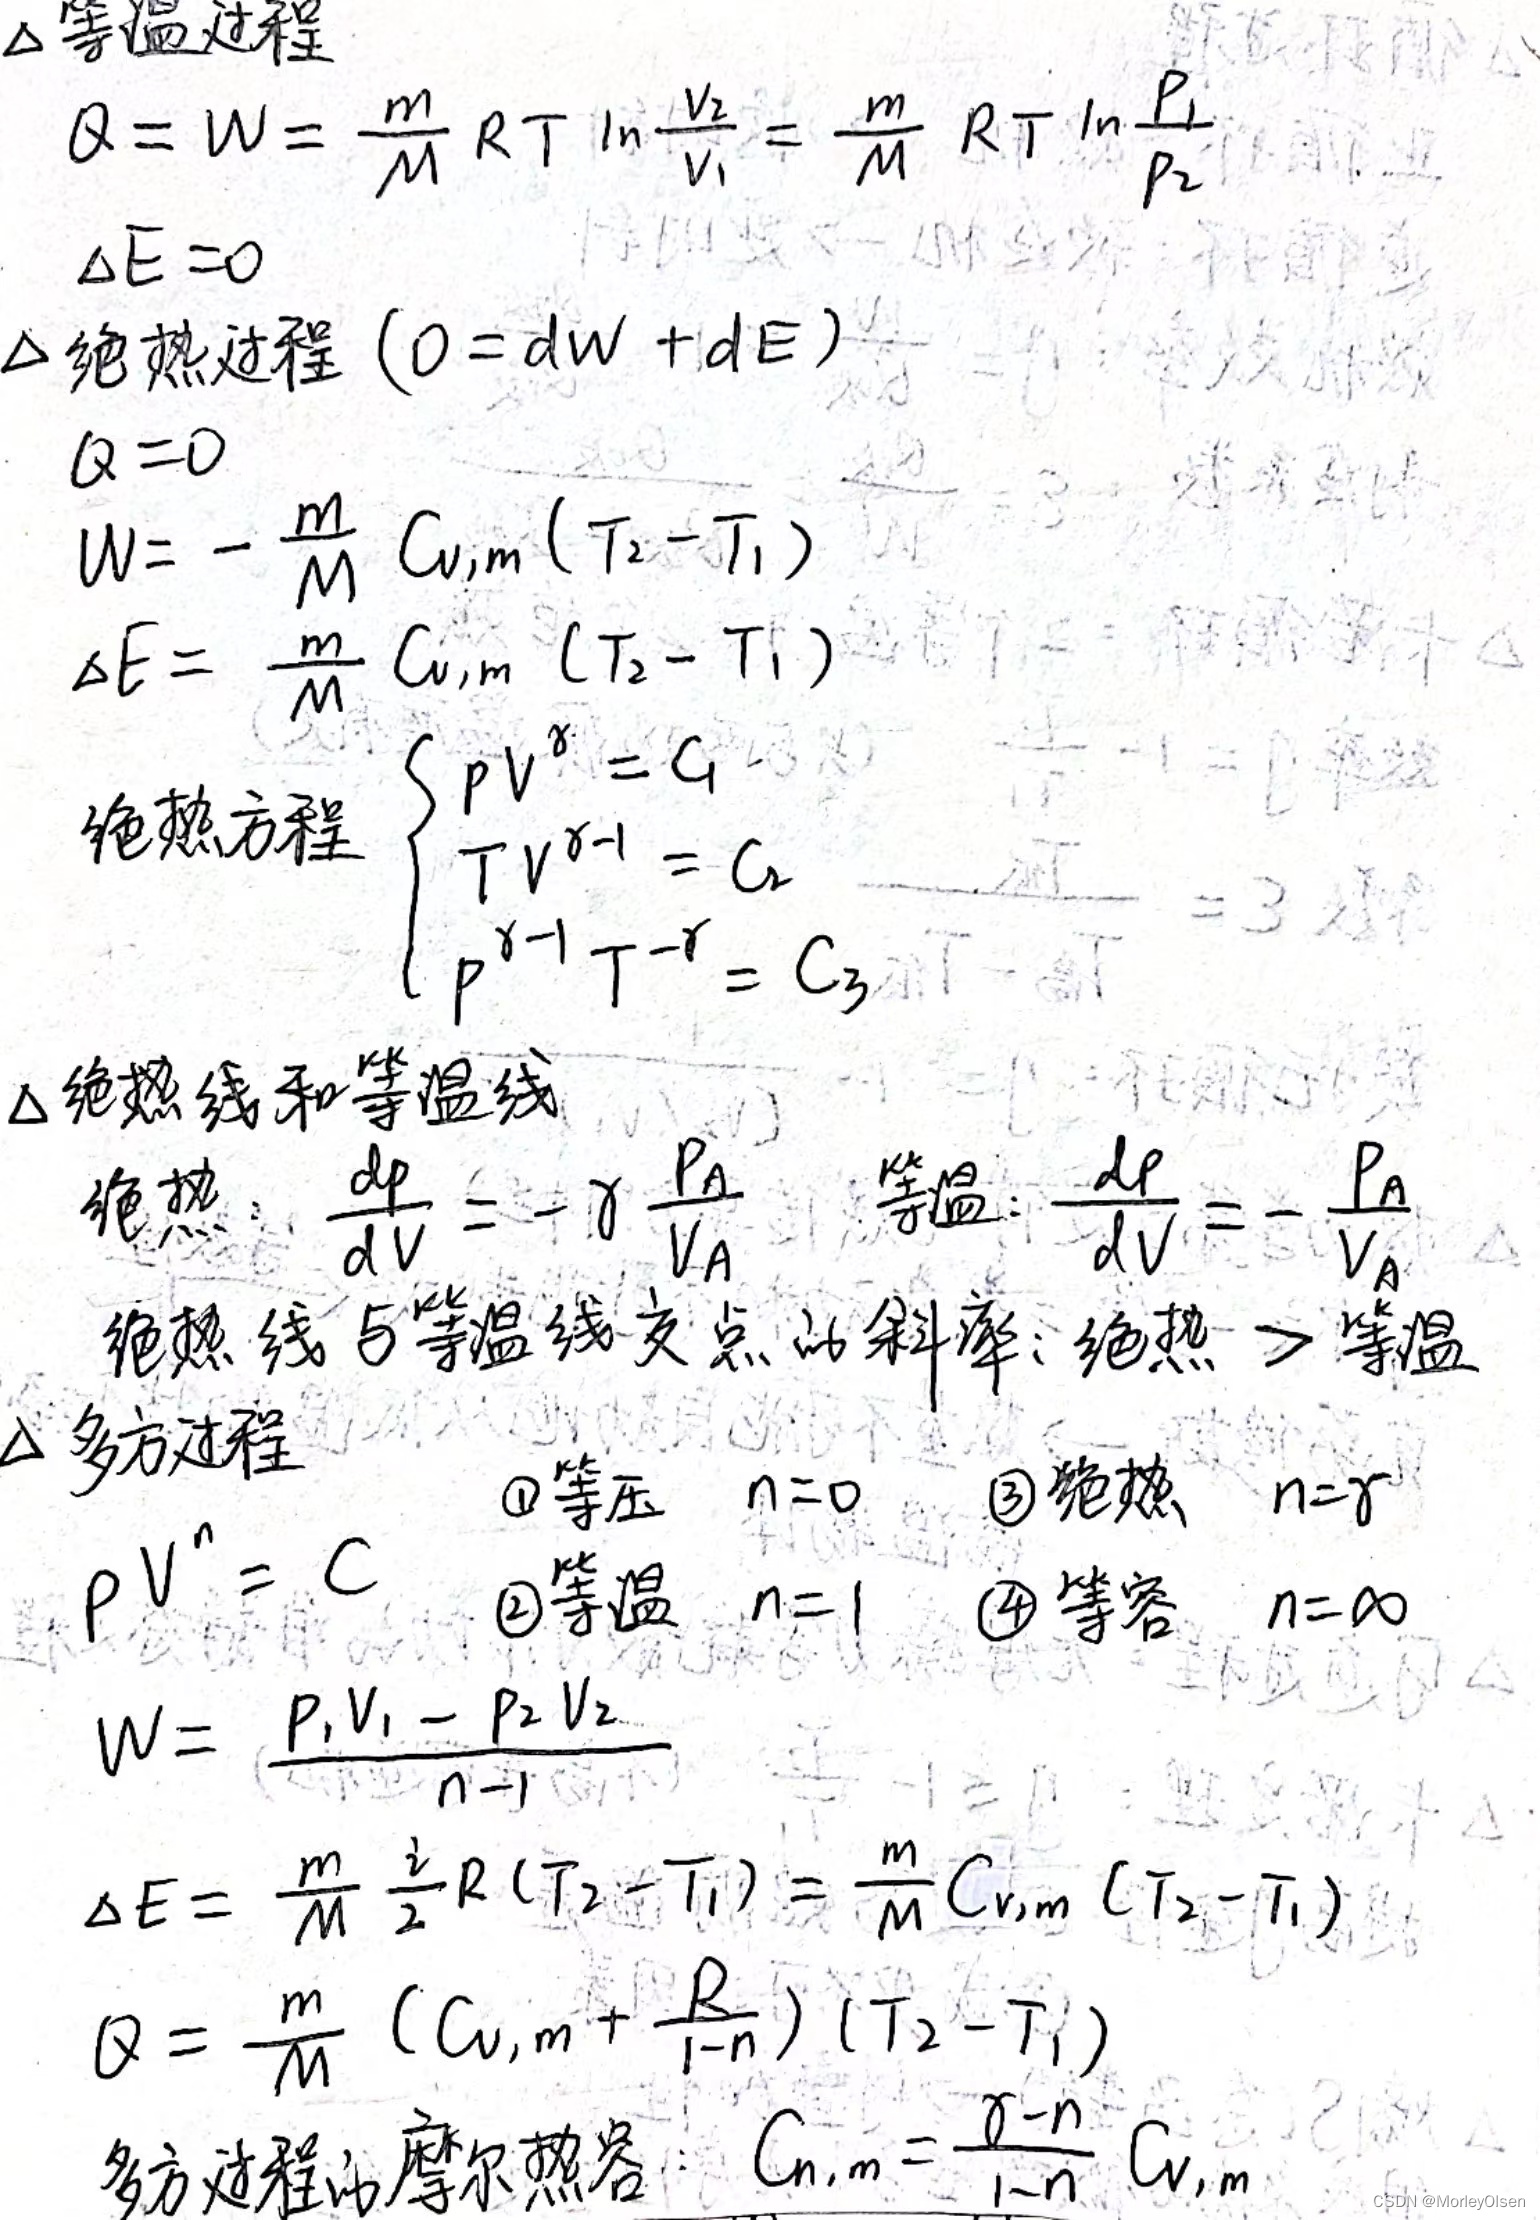 △等温过程
Q = W = m/M RT ln V₂/V₁ = m/M RT ln P₁/P₂
△E = 0
△绝热过程 (0 = dW + dE)
Q = 0
W = - m/M Cv,m (T₂ - T₁)
△E = m/M Cv,m (T₂ - T₁)
绝热方程 { pV^γ = C₁
TV^(γ-1) = C₂
p^(γ-1) T^(-γ) = C₃
△绝热线和等温线
绝热: dp/dV = -γ PA/VA 等温: dp/dV = - PA/VA
绝热线与等温线交点的斜率: 绝热 > 等温
△多方过程
①等压 n=0 ③绝热 n=γ
pVⁿ = C
②等温 n=1 ④等容 n=∞
W = (p₁V₁ - p₂V₂)/(n-1)
△E = m/M i/2 R(T₂ - T₁) = m/M Cv,m (T₂ - T₁)
Q = m/M (Cv,m + R/(1-n)) (T₂ - T₁)
多方过程的摩尔热容: Cn,m = (γ-n)/(1-n) Cv,m
CSDN @MorleyOlsen